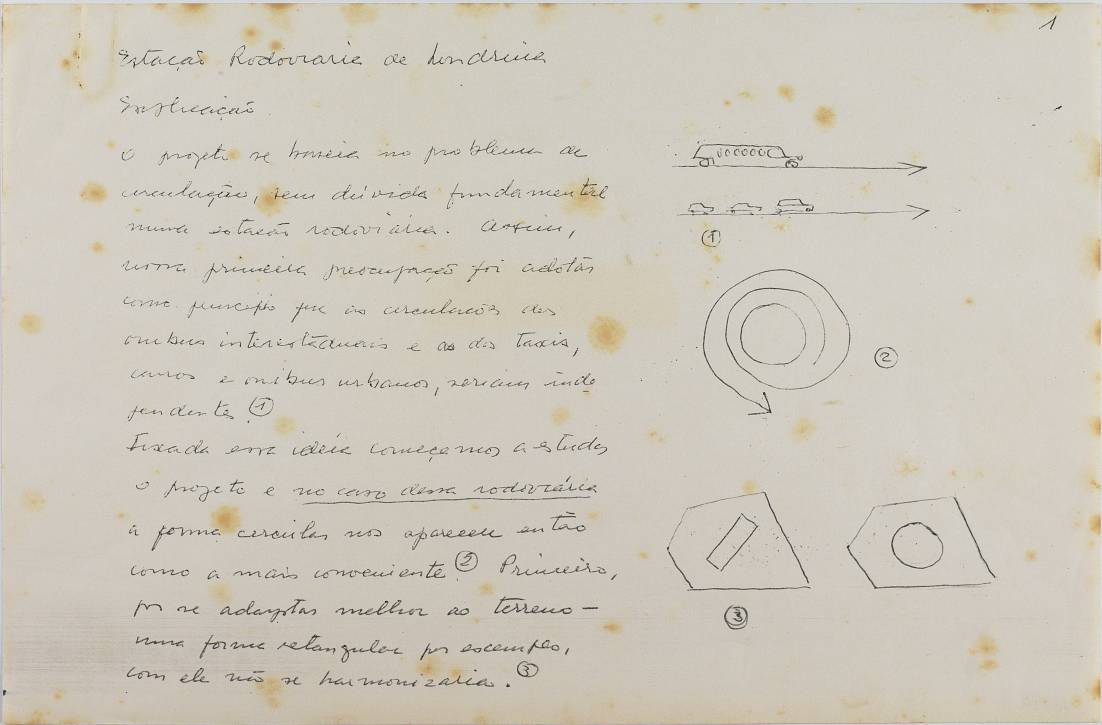 1
Estação Rodoviaria de Londrina
Explicação
O projeto se baseia no problema de
circulação, sem dúvida fundamental
numa estação rodoviária. Assim,
nossa primeira preocupação foi adotar
como princípio que as circulações dos
onibus interestaduais e as dos taxis,
carros e onibus urbanos, seriam inde
pendentes. 1
Fixada essa idéia começamos a estudar
o projeto e no caso dessa rodoviária
a forma circular nos apareceu então
como a mais conveniente 2 Primeiro,
por se adaptar melhor ao terreno —
uma forma retangular por exemplo,
com ele não se harmonizaria. 3
1
2
3